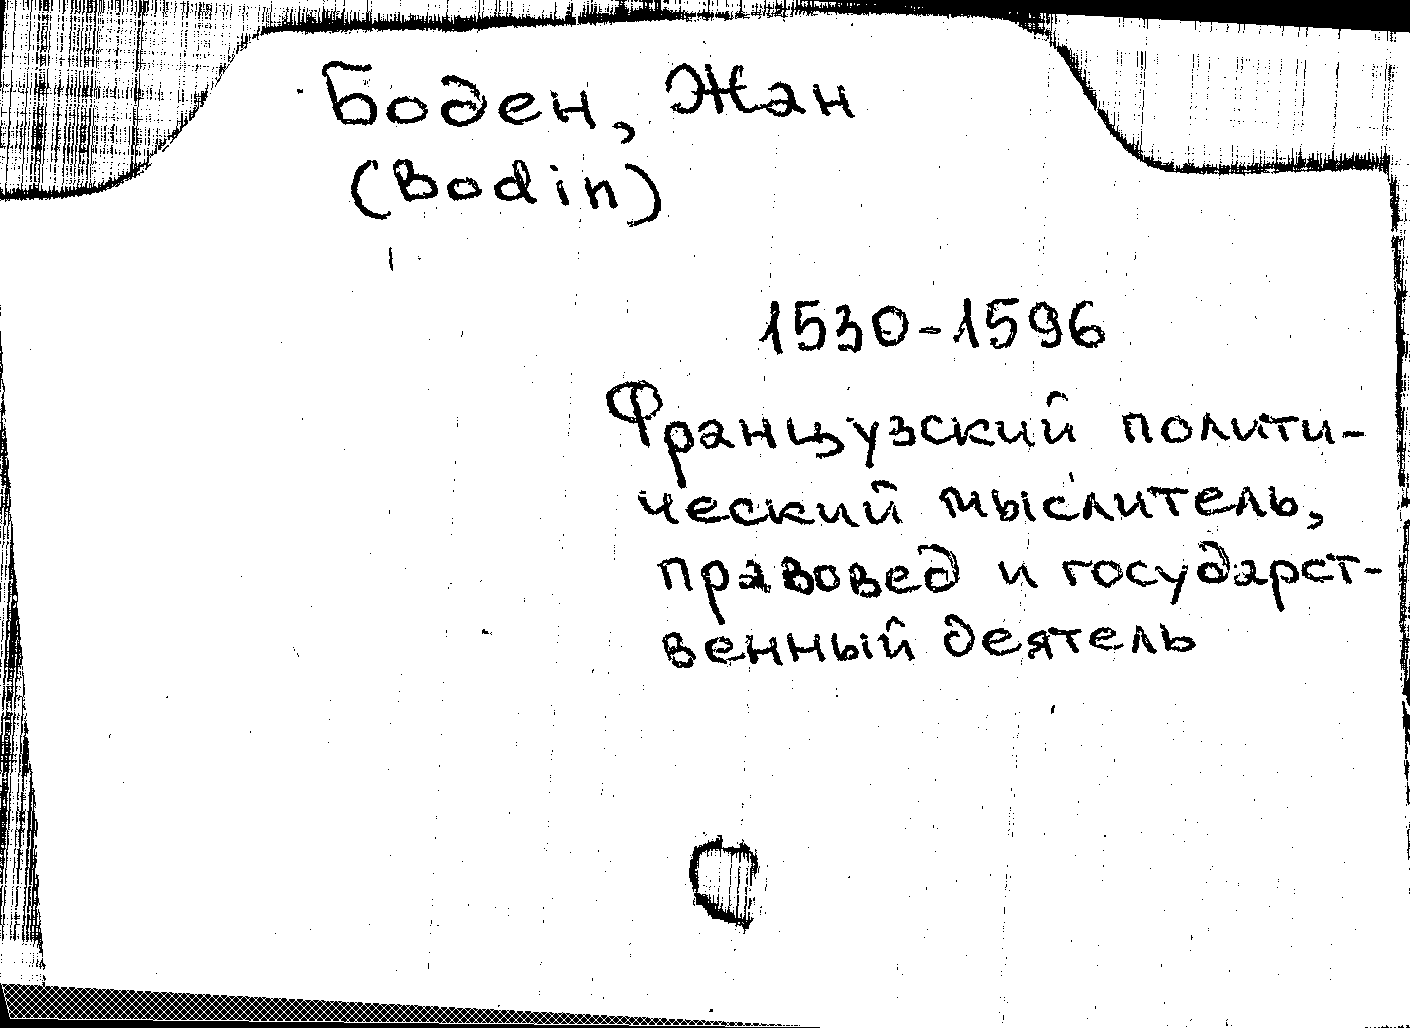 Боден, Жан
(Bodin)
1530-1596
Французский полити-
ческий мыслитель,
правовед и государст-
венный деятель